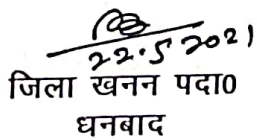 22.5 2021
जिला खनन पदा0
धनबाद